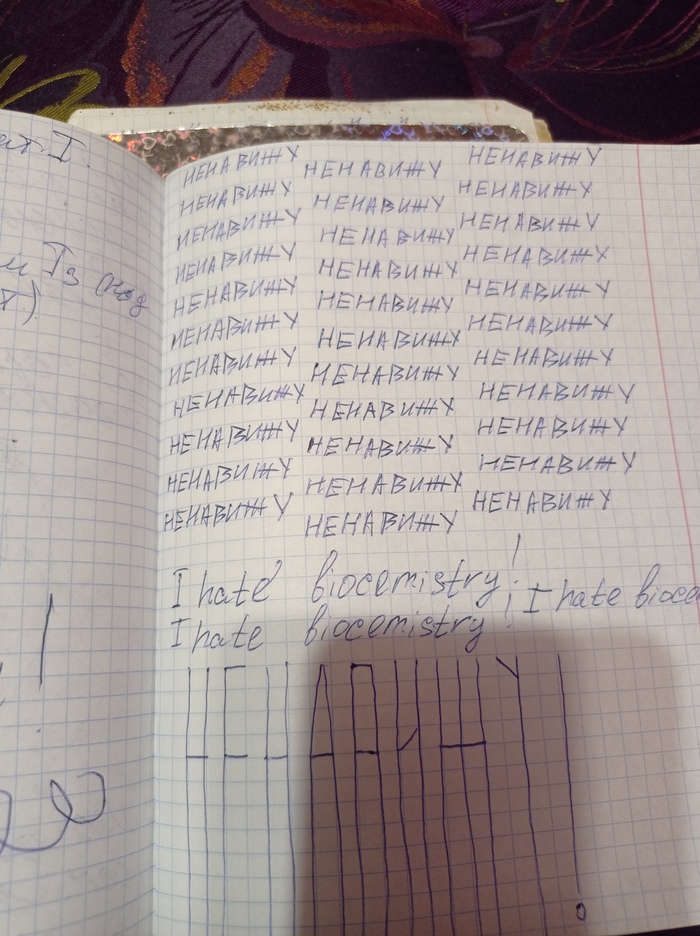 НЕНАВИЖУ НЕНАВИЖУ НЕНАВИЖУ
НЕНАВИЖУ НЕНАВИЖУ НЕНАВИЖУ
НЕНАВИЖУ НЕНАВИЖУ НЕНАВИЖУ
НЕНАВИЖУ НЕНАВИЖУ НЕНАВИЖУ
НЕНАВИЖУ НЕНАВИЖУ НЕНАВИЖУ
НЕНАВИЖУ НЕНАВИЖУ НЕНАВИЖУ
НЕНАВИЖУ НЕНАВИЖУ НЕНАВИЖУ
НЕНАВИЖУ НЕНАВИЖУ НЕНАВИЖУ
НЕНАВИЖУ НЕНАВИЖУ НЕНАВИЖУ
НЕНАВИЖУ НЕНАВИЖУ НЕНАВИЖУ
НЕНАВИЖУ НЕНАВИЖУ НЕНАВИЖУ
I hate biocemistry!
I hate biocemistry! I hate bioce
НЕНАВИЖУ!